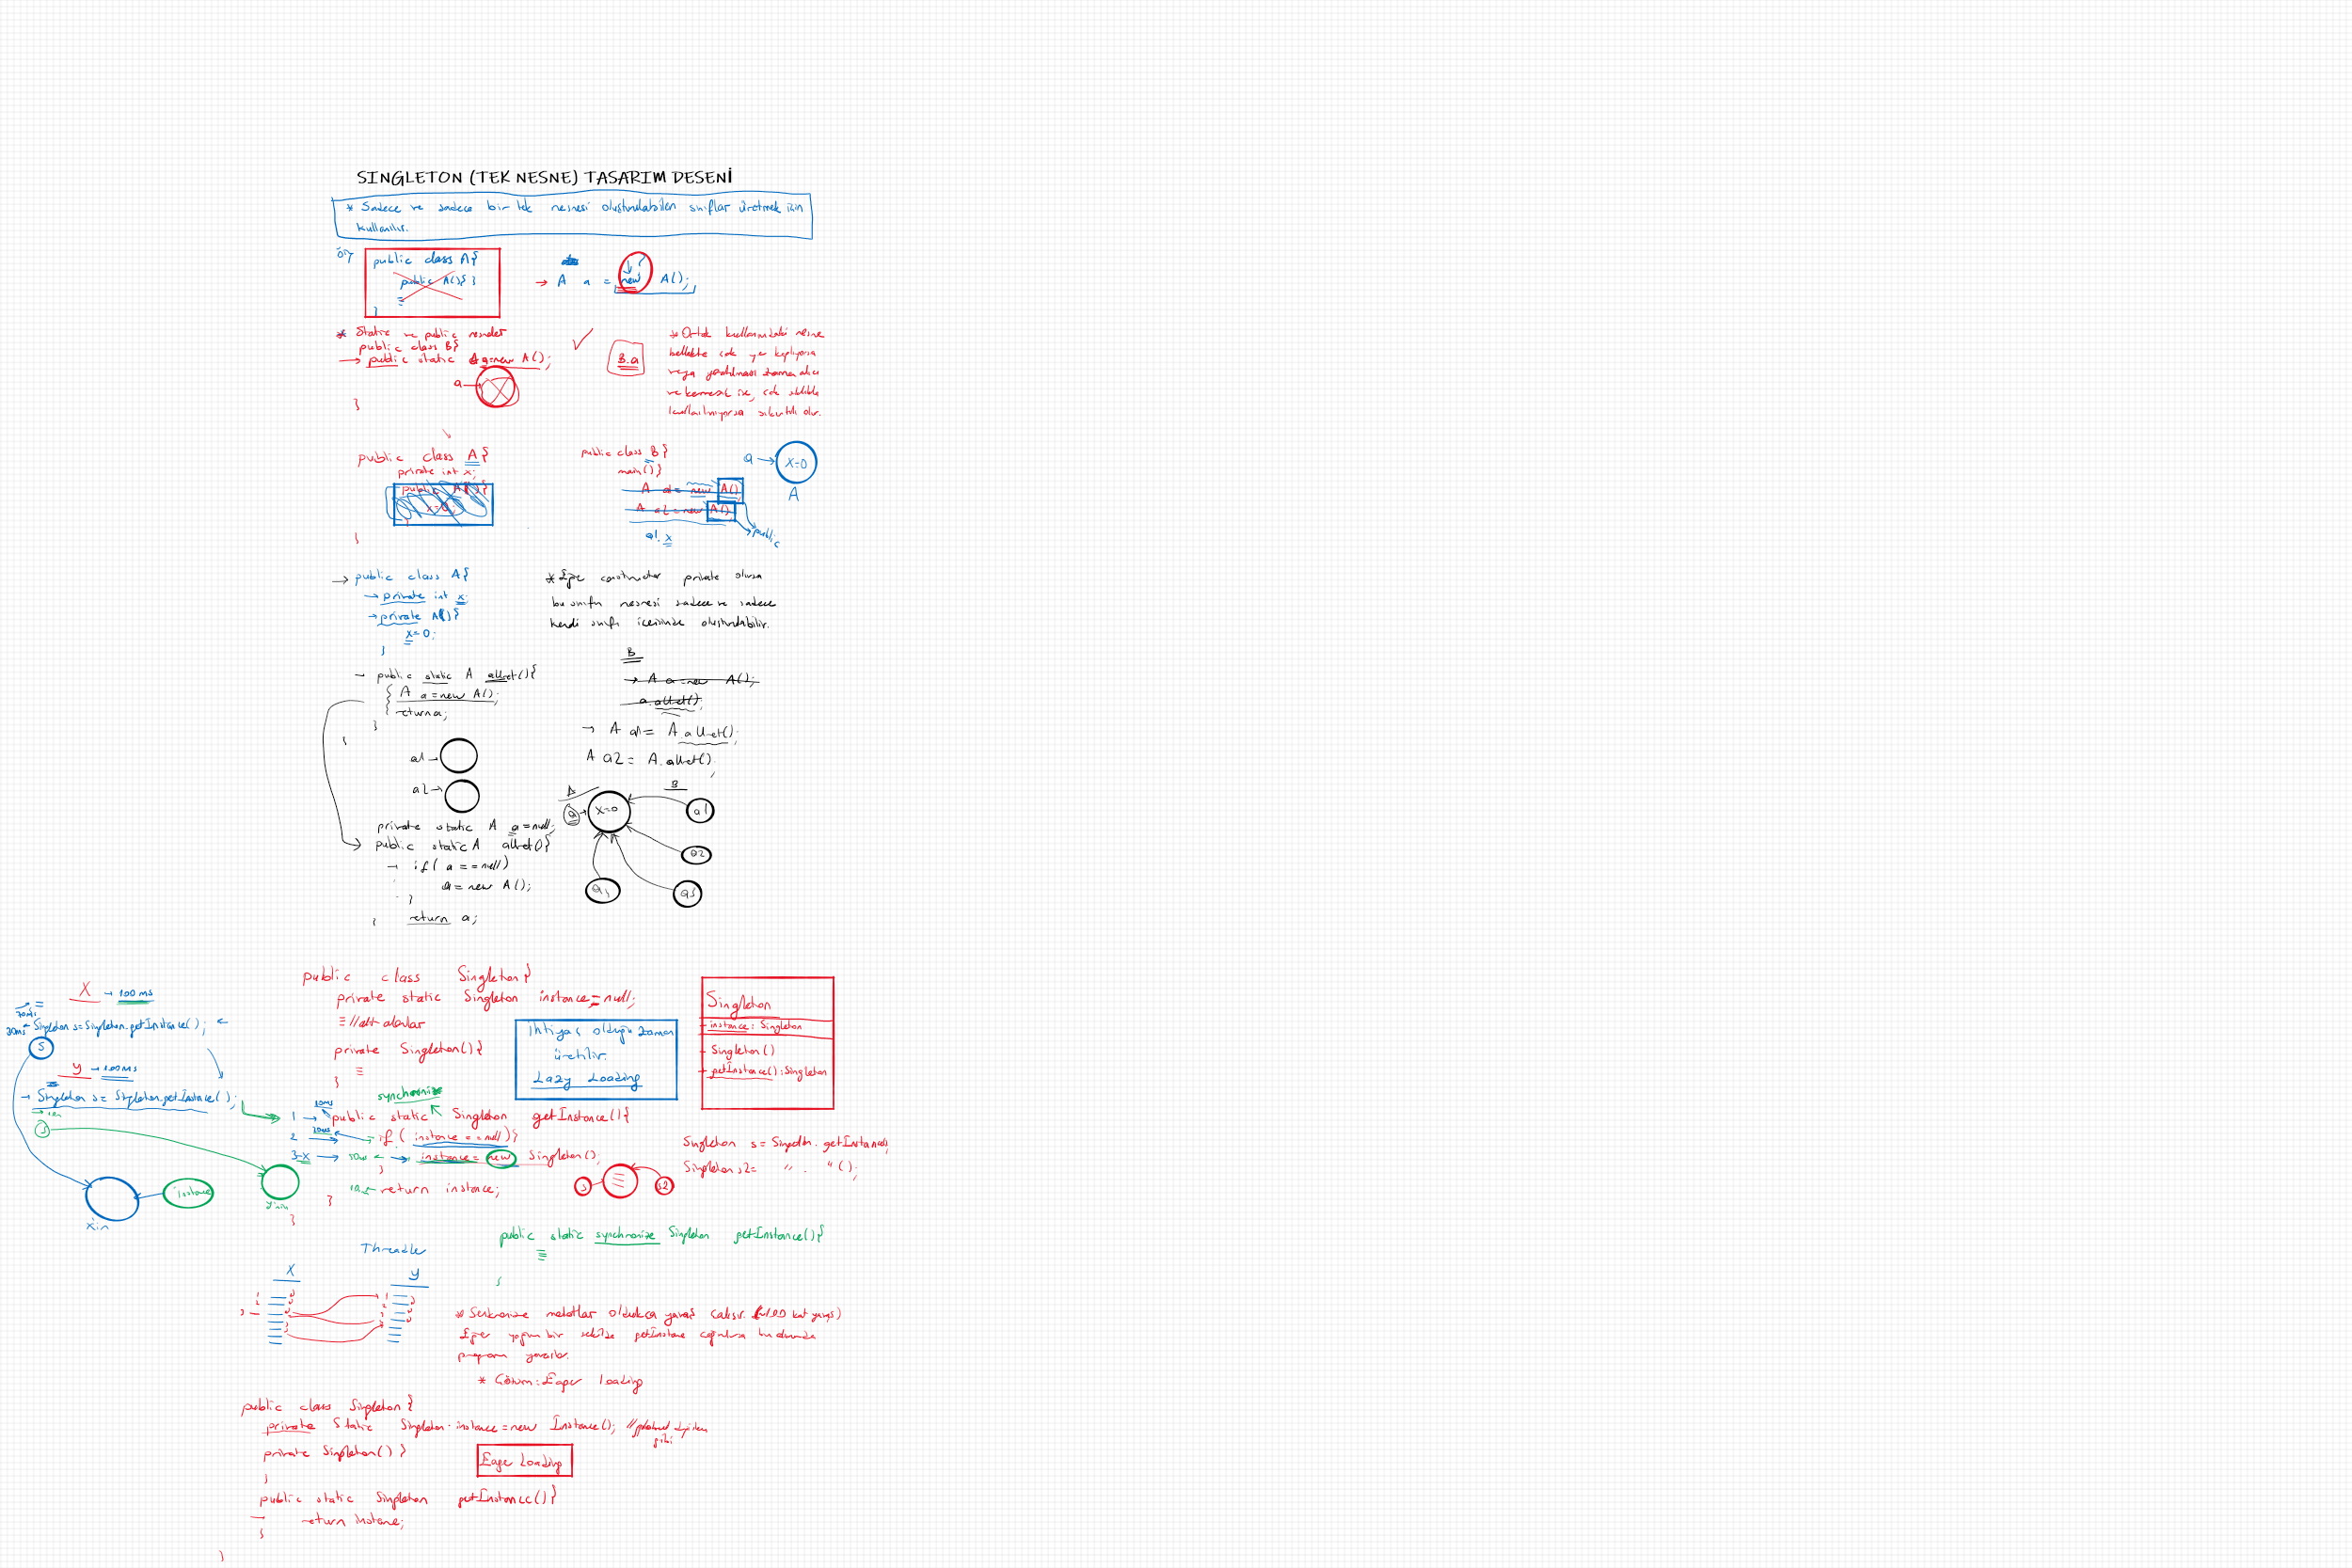 SINGLETON (TEK NESNE) TASARIM DESENİ
* Sadece ve sadece bir tek nesnesi oluşturulabilen sınıflar üretmek için
kullanılır.
public class A{
public A(){ }
}
→ A a = new A();
* Static ve public nesneler
public class B{
→ public static A a=new A();
a
}
B.a
* Ortak kullanımdaki nesne
bellekte çok yer kaplıyorsa
veya yaratılması zaman alıcı
ise, çok sıklıkla
kullanılmıyorsa sıkıntılı olur.
public class A{
private int x;
public A(){
x=0;
}
}
public class B{
main(){
A a1 = new A()
A a2 = new A()
a1.x
public
a → x=0
A
→ public class A{
→ private int x;
→ private A(){
x=0;
}
* Eğer constructor private olursa
bu sınıfın nesnesi sadece ve sadece
kendi sınıfı içerisinde oluşturulabilir.
→ public static A aUret(){
A a=new A();
return a;
}
}
B
→ A a=new A();
a.aUret();
→ A a1 = A.aUret();
A a2 = A.aUret();
a1 →
a2 →
A
B
a → x=0
a1
a2
private static A a=null;
public static A aUret(){
→ if( a == null)
a = new A();
}
return a;
}
public class Singleton{
private static Singleton instance=null;
private Singleton(){
}
synchronize
1 → public static Singleton getInstance(){
2 → if( instance == null){
3-x → instance = new Singleton();
}
return instance;
}
}
İhtiyaç olduğu zaman
üretilir.
Lazy Loading
Singleton
- instance: Singleton
- Singleton()
+ getInstance():Singleton
X → 100 ms
Singleton s=Singleton.getInstance();
s
y → 100ms
→ Singleton s= Singleton.getInstance();
s
instance
x'in
y'nin
Singleton s = Singleton.getInstance();
Singleton s2= " . "();
s
s2
public static synchronize Singleton getInstance(){
}
Threadle
X
y
* Senkronize metotlar oldukça yavaş çalışır. (100 kat yavaş)
Eğer yoğun bir şekilde getInstance çağrılırsa bu durumda
program yavaşlar.
* Çözüm: Eager loading
public class Singleton{
private static Singleton instance = new Instance(); //
private Singleton() {
}
Eage Loading
public static Singleton getInstance(){
return instane;
}
}